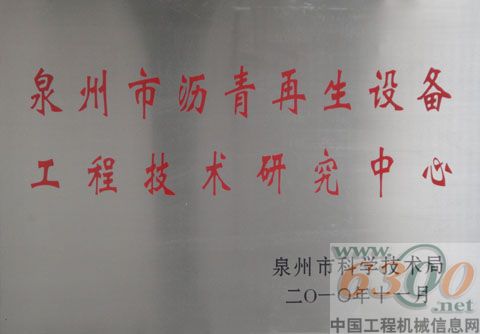 泉州市沥青再生设备
工程技术研究中心
泉州市科学技术局
二〇一〇年十一月
www.
6300
.net
中国工程机械信息网